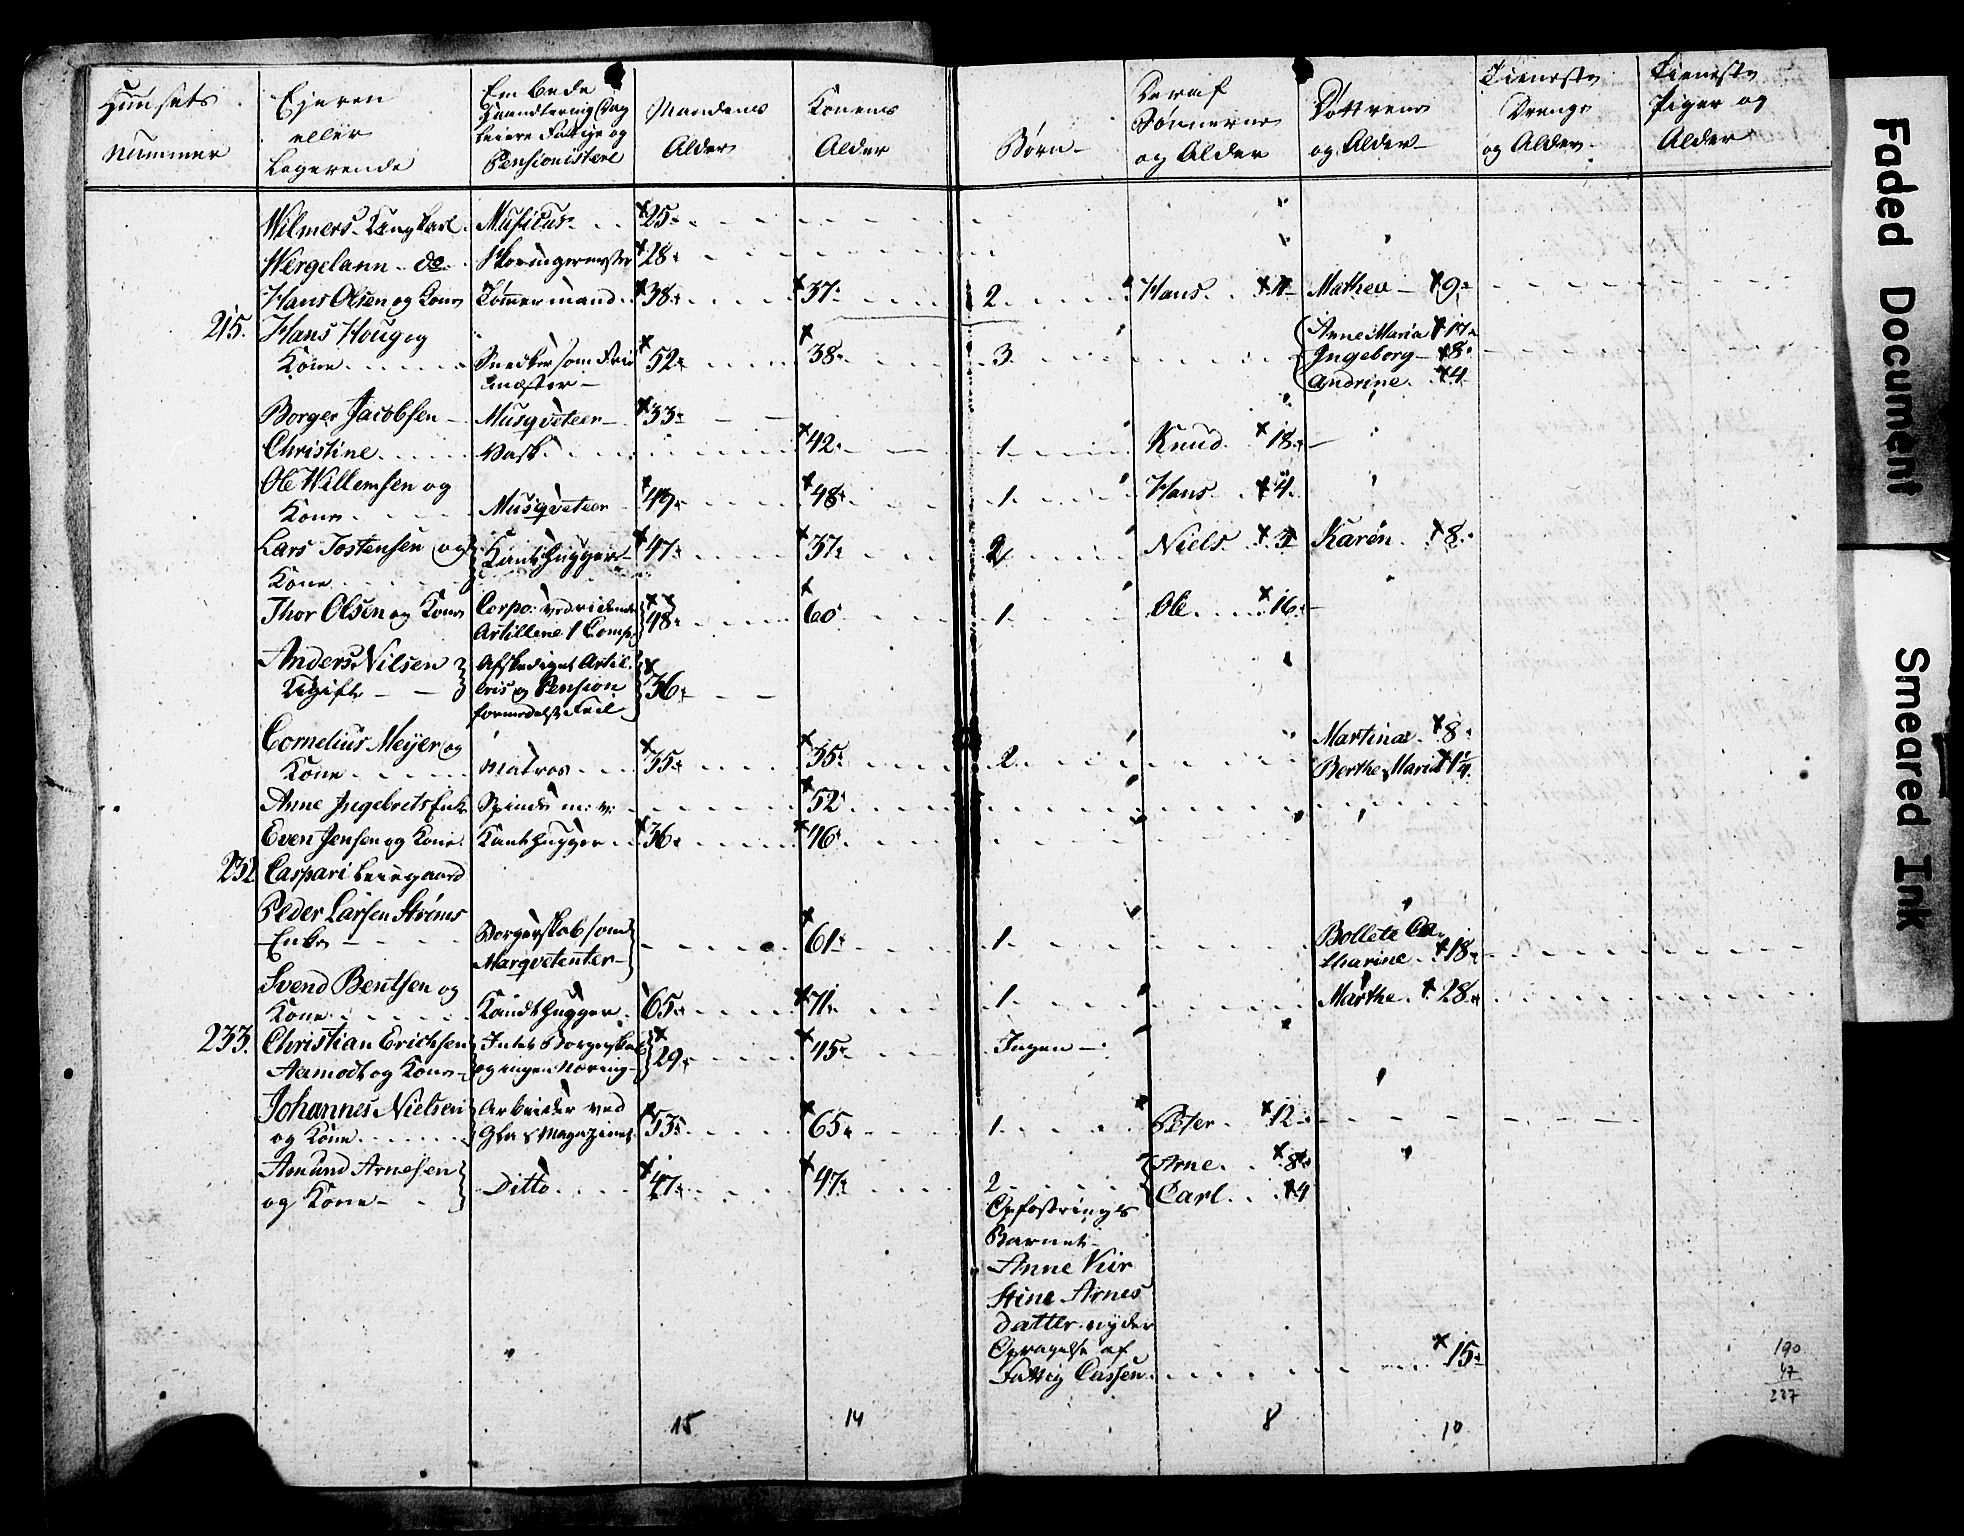 Huusets Nummer
Ejeren eller Logerende
Embede Haandtering Dag leiere Fattige og Pensionister
Mandens Alder
Konens Alder
Børn
Deraf Sønnerne og Alder
Døttrene og Alder
Tieneste Drenge og Alder
Tieneste Piger og Alder
Wilmers Ungkarl Musicus 25
Wergelann do 28
Hans Olsen og Kone Tømmermand 38 37 2 Hans Mathea 9
215. Hans Houg og Anne Maria 17
Kone Snedker som Frie 52 38 3 Ingeborg 8
mæster Andrine 4
Borger Jacobsen Musqveteer 33
Christine Vask 42 1 Knud 18
Ole Willemsen og
Kone Musqveteer 49 48 1 Hans 4
Lars Tostensen og Kanthugger 47 37 2 Niels Karen 8
Kone
Thor Olsen og Kone Corpo: ved ridende 48 60 1 Ole 16
Artillerie 1 Comp
Anders Nilsen Afskediget Artil
Ugift og Pension 36
formedelst Feil
Cornelius Meyer og Martina 8
Kone Matros 35 35 2 Berthe Maria 1/4
Anne Ingebrets Enke Spinde m: v: 52
Even Jensen og Kone Kanthugger 36 46
232 Caspari Leiegaard
Peder Larsen Strøms
Enke Borgerskab som 61 1 Bollete Ca
Marqvetenter tharine 18
Svend Bentsen og
Kone Kandthugger 65 71 1 Marthe 28
233. Christian Erichsen Intet Borgerskab 29 45 Ingen
Aamodt og Kone og ingen Næring
Johannes Nielsen Arbeider ved
og Kone Glas Magazinet 53 65 1 Peter 12
Amund Arnesen Arne 8
og Kone Ditto 47 47 2 Carl 4
Opfostrings
Barnet
Anne Kier
stine Arnes
datter nyder
af
Fattig Cassen 15
15 14 8 10
190
47
237
Faded Document
Smeared Ink